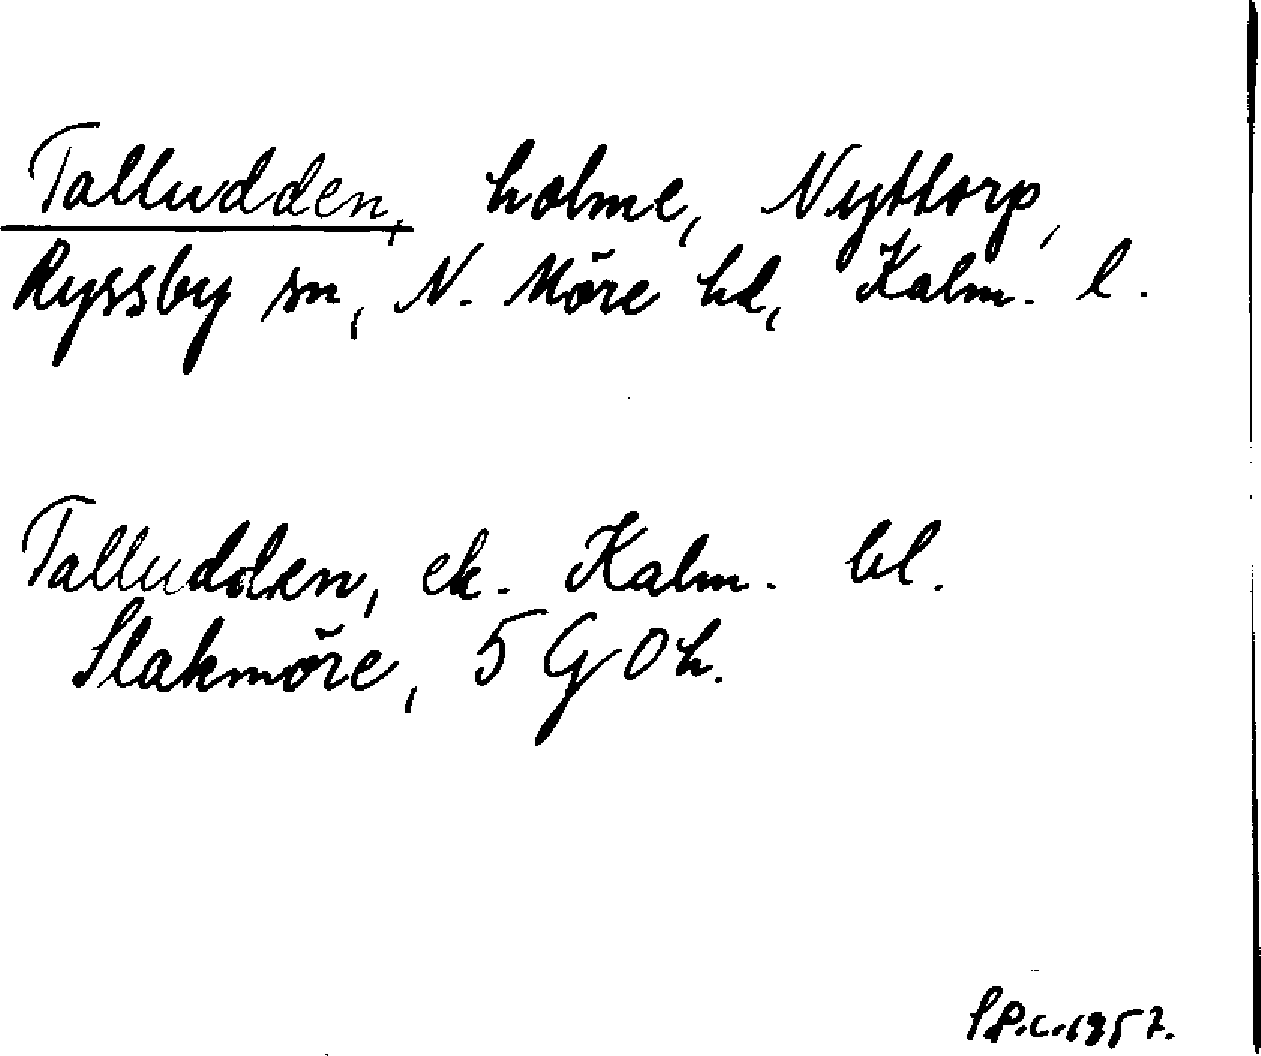 Talludden, holme, Nyttorp,
Ryssby sn, N. Möre hd, Kalm. l.
Talludden, ek. Kalm. bl.
Slakmöre, 5 G 0 h.
1957.